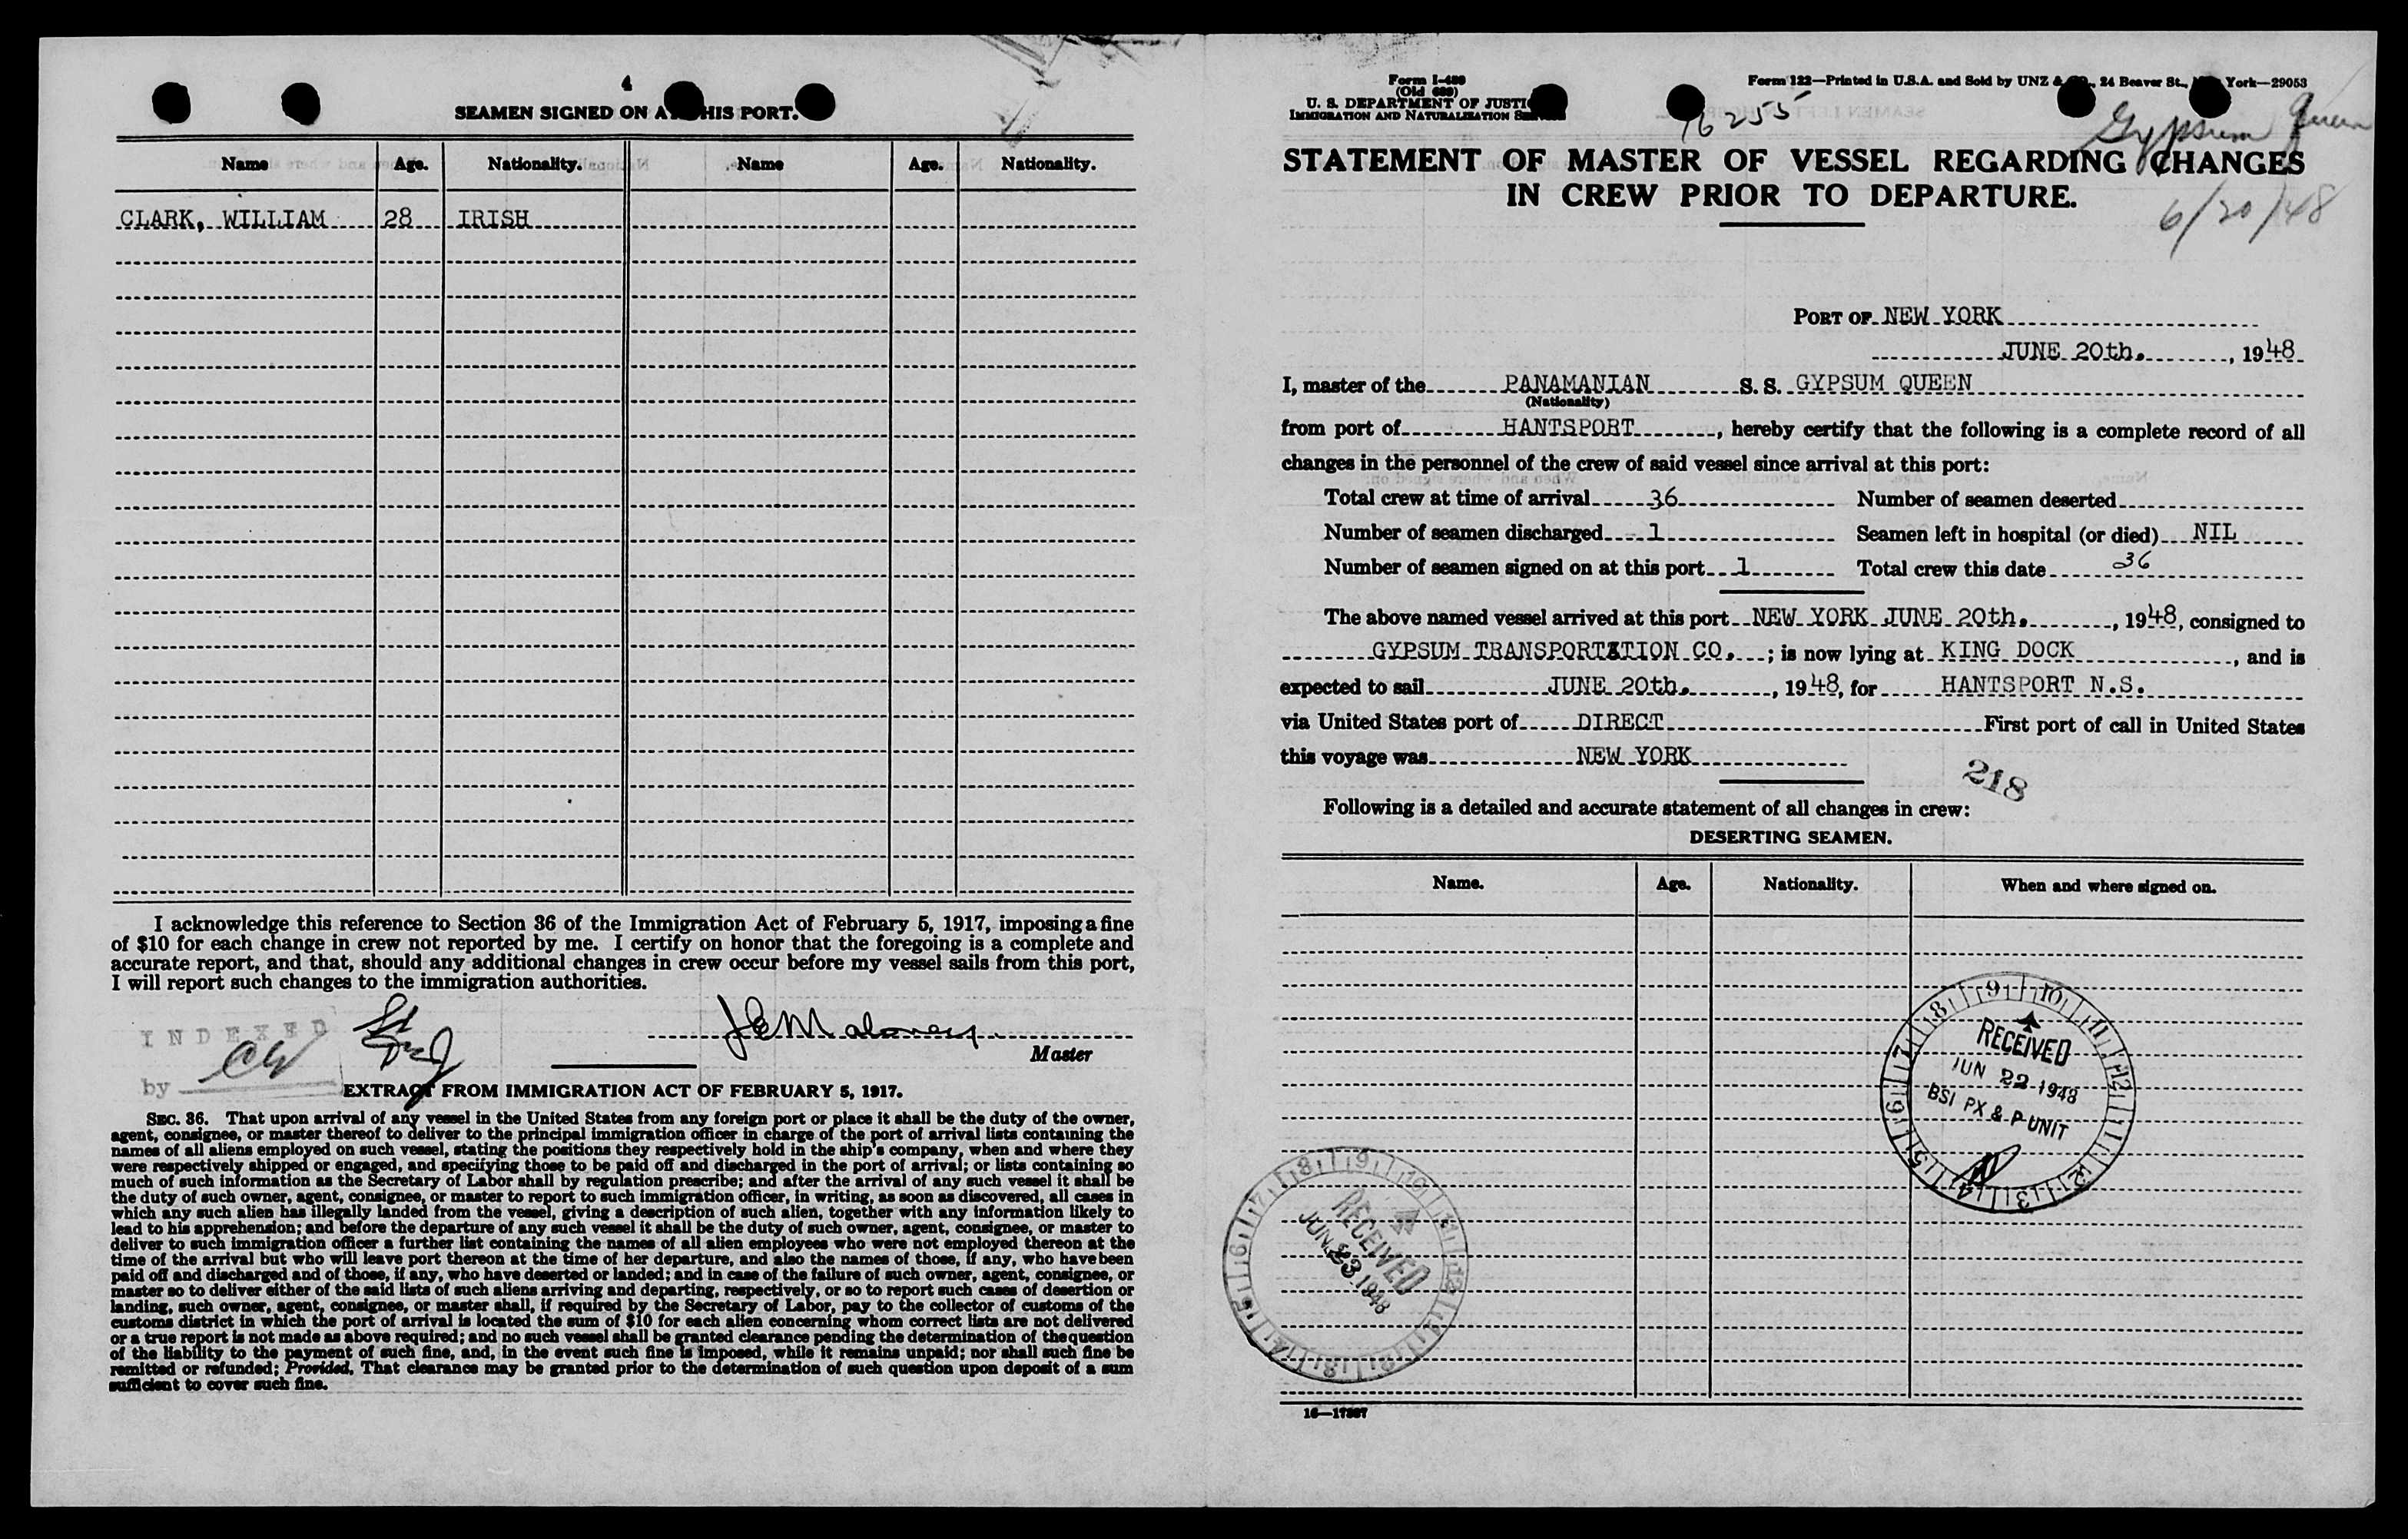 4
SEAMEN SIGNED ON A HIS PORT.
Name Age. Nationality. Name Age. Nationality.
CLARK, WILLIAM 28 IRISH
I acknowledge this reference to Section 36 of the Immigration Act of February 5, 1917, imposing a fine
of $10 for each change in crew not reported by me. I certify on honor that the foregoing is a complete and
accurate report, and that, should any additional changes in crew occur before my vessel sails from this port,
I will report such changes to the immigration authorities.
INDEXED
by CW
J E Maloney
Master
EXTRACT FROM IMMIGRATION ACT OF FEBRUARY 5, 1917.
SEC. 36. That upon arrival of any vessel in the United States from any foreign port or place it shall be the duty of the owner,
agent, consignee, or master thereof to deliver to the principal immigration officer in charge of the port of arrival lists containing the
names of all aliens employed on such vessel, stating the positions they respectively hold in the ship's company, when and where they
were respectively shipped or engaged, and specifying those to be paid off and discharged in the port of arrival; or lists containing so
much of such information as the Secretary of Labor shall by regulation prescribe; and after the arrival of any such vessel it shall be
the duty of such owner, agent, consignee, or master to report to such immigration officer, in writing, as soon as discovered, all cases in
which any such alien has illegally landed from the vessel, giving a description of such alien, together with any information likely to
lead to his apprehension; and before the departure of any such vessel it shall be the duty of such owner, agent, consignee, or master to
deliver to such immigration officer a further list containing the names of all alien employees who were not employed thereon at the
time of the arrival but who will leave port thereon at the time of her departure, and also the names of those, if any, who have been
paid off and discharged and of those, if any, who have deserted or landed; and in case of the failure of such owner, agent, consignee, or
master so to deliver either of the said lists of such aliens arriving and departing, respectively, or so to report such cases of desertion or
landing, such owner, agent, consignee, or master shall, if required by the Secretary of Labor, pay to the collector of customs of the
customs district in which the port of arrival is located the sum of $10 for each alien concerning whom correct lists are not delivered
or a true report is not made as above required; and no such vessel shall be granted clearance pending the determination of the question
of the liability to the payment of such fine, and, in the event such fine is imposed, while it remains unpaid; nor shall such fine be
remitted or refunded; Provided, That clearance may be granted prior to the determination of such question upon deposit of a sum
sufficient to cover such fine.
Form I-489
(Old 689)
U. S. DEPARTMENT OF JUSTI
IMMIGRATION AND NATURALIZATION
Form 122—Printed in U.S.A. and Sold by UNZ & , 24 Beaver St., York—29053
76255
Gypsum Queen
STATEMENT OF MASTER OF VESSEL REGARDING CHANGES
IN CREW PRIOR TO DEPARTURE.
6/20/48
PORT OF NEW YORK
JUNE 20th. , 1948
I, master of the PANAMANIAN S. S. GYPSUM QUEEN
(Nationality)
from port of HANTSPORT , hereby certify that the following is a complete record of all
changes in the personnel of the crew of said vessel since arrival at this port:
Total crew at time of arrival 36 Number of seamen deserted
Number of seamen discharged 1 Seamen left in hospital (or died) NIL
Number of seamen signed on at this port 1 Total crew this date 36
The above named vessel arrived at this port NEW YORK JUNE 20th. , 1948, consigned to
GYPSUM TRANSPORTATION CO. ; is now lying at KING DOCK , and is
expected to sail JUNE 20th. , 1948, for HANTSPORT N.S.
via United States port of DIRECT First port of call in United States
this voyage was NEW YORK
218
Following is a detailed and accurate statement of all changes in crew:
DESERTING SEAMEN.
Name. Age. Nationality. When and where signed on.
RECEIVED
JUN 22 1948
BSI PX & P-UNIT
RECEIVED
JUN 23 1948
16—17887